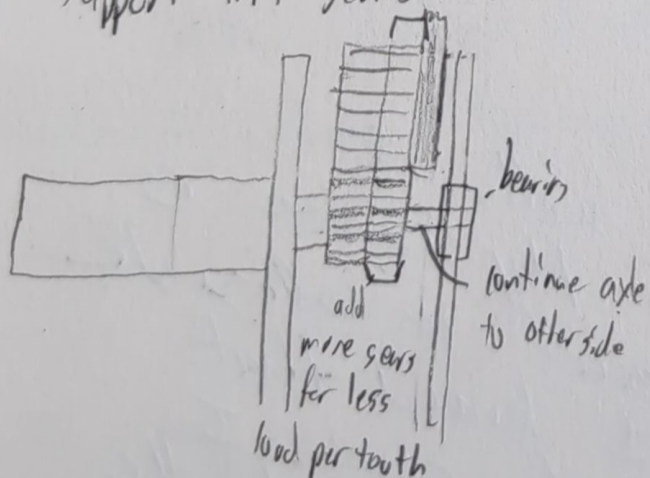 support
bearing
continue axle
to other side
add
more gears
for less
load per tooth